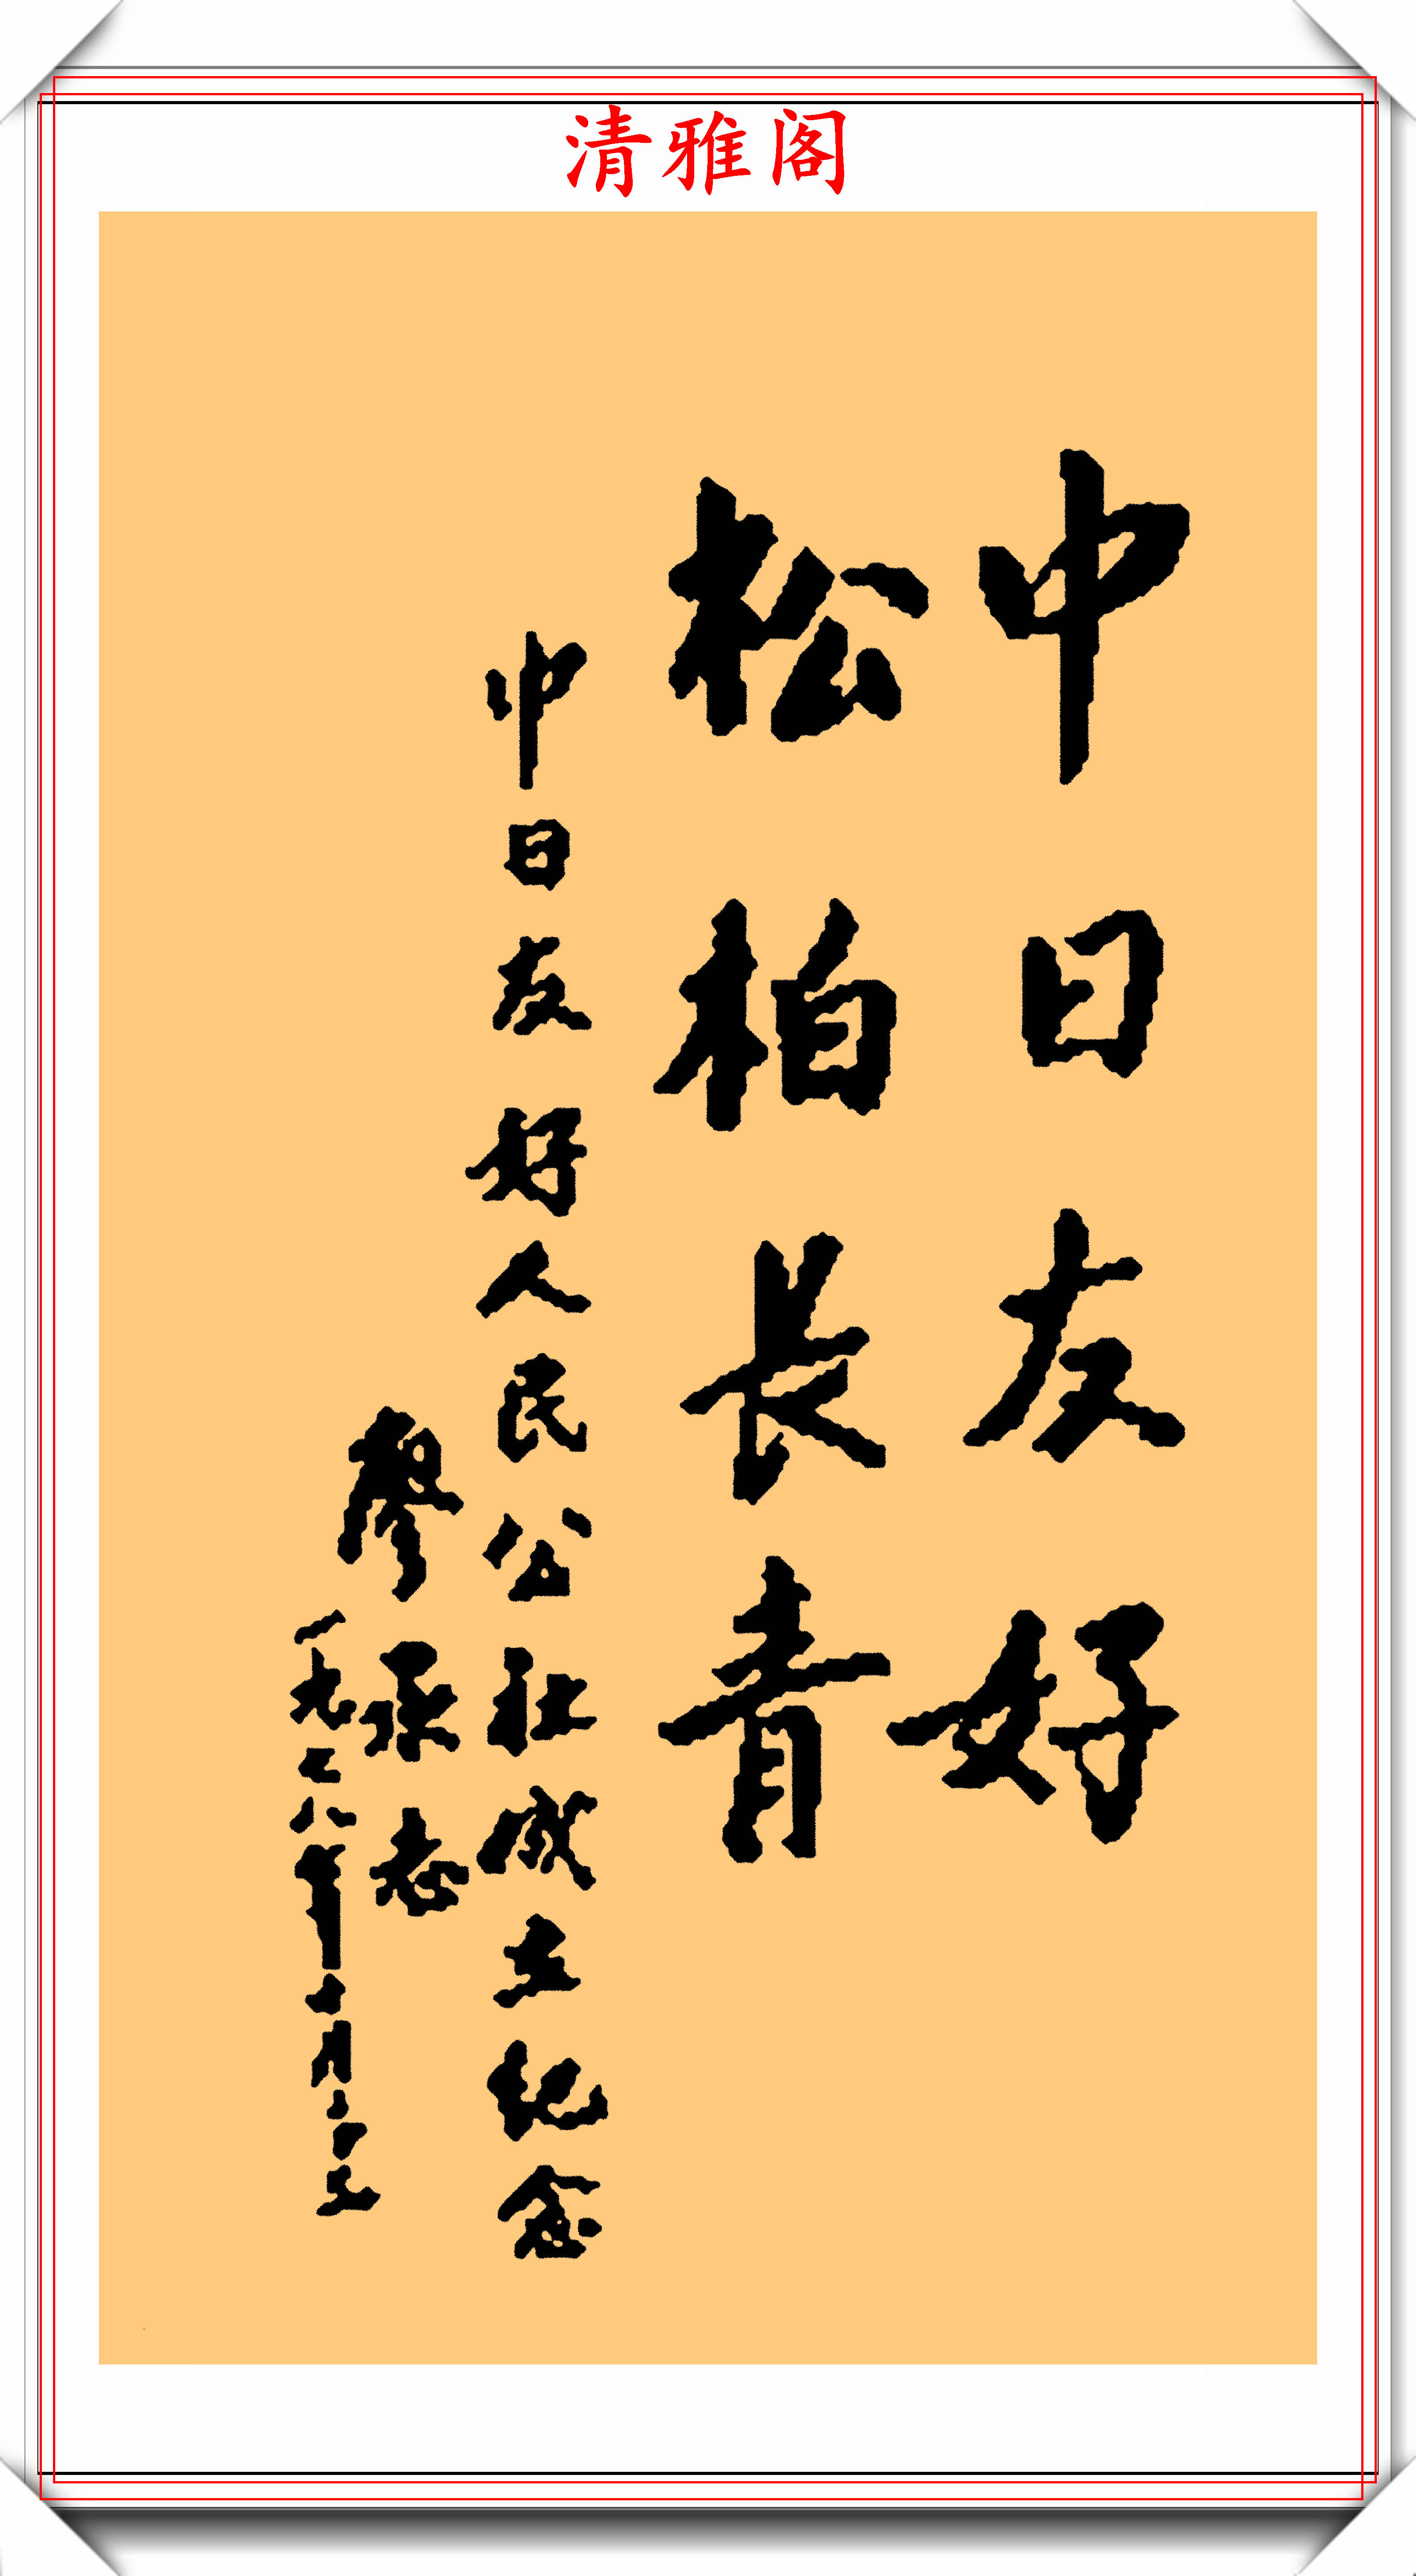 清雅阁
中日友好
松柏長青
中日友好人民公社成立纪念
廖承志
一九七八年十月